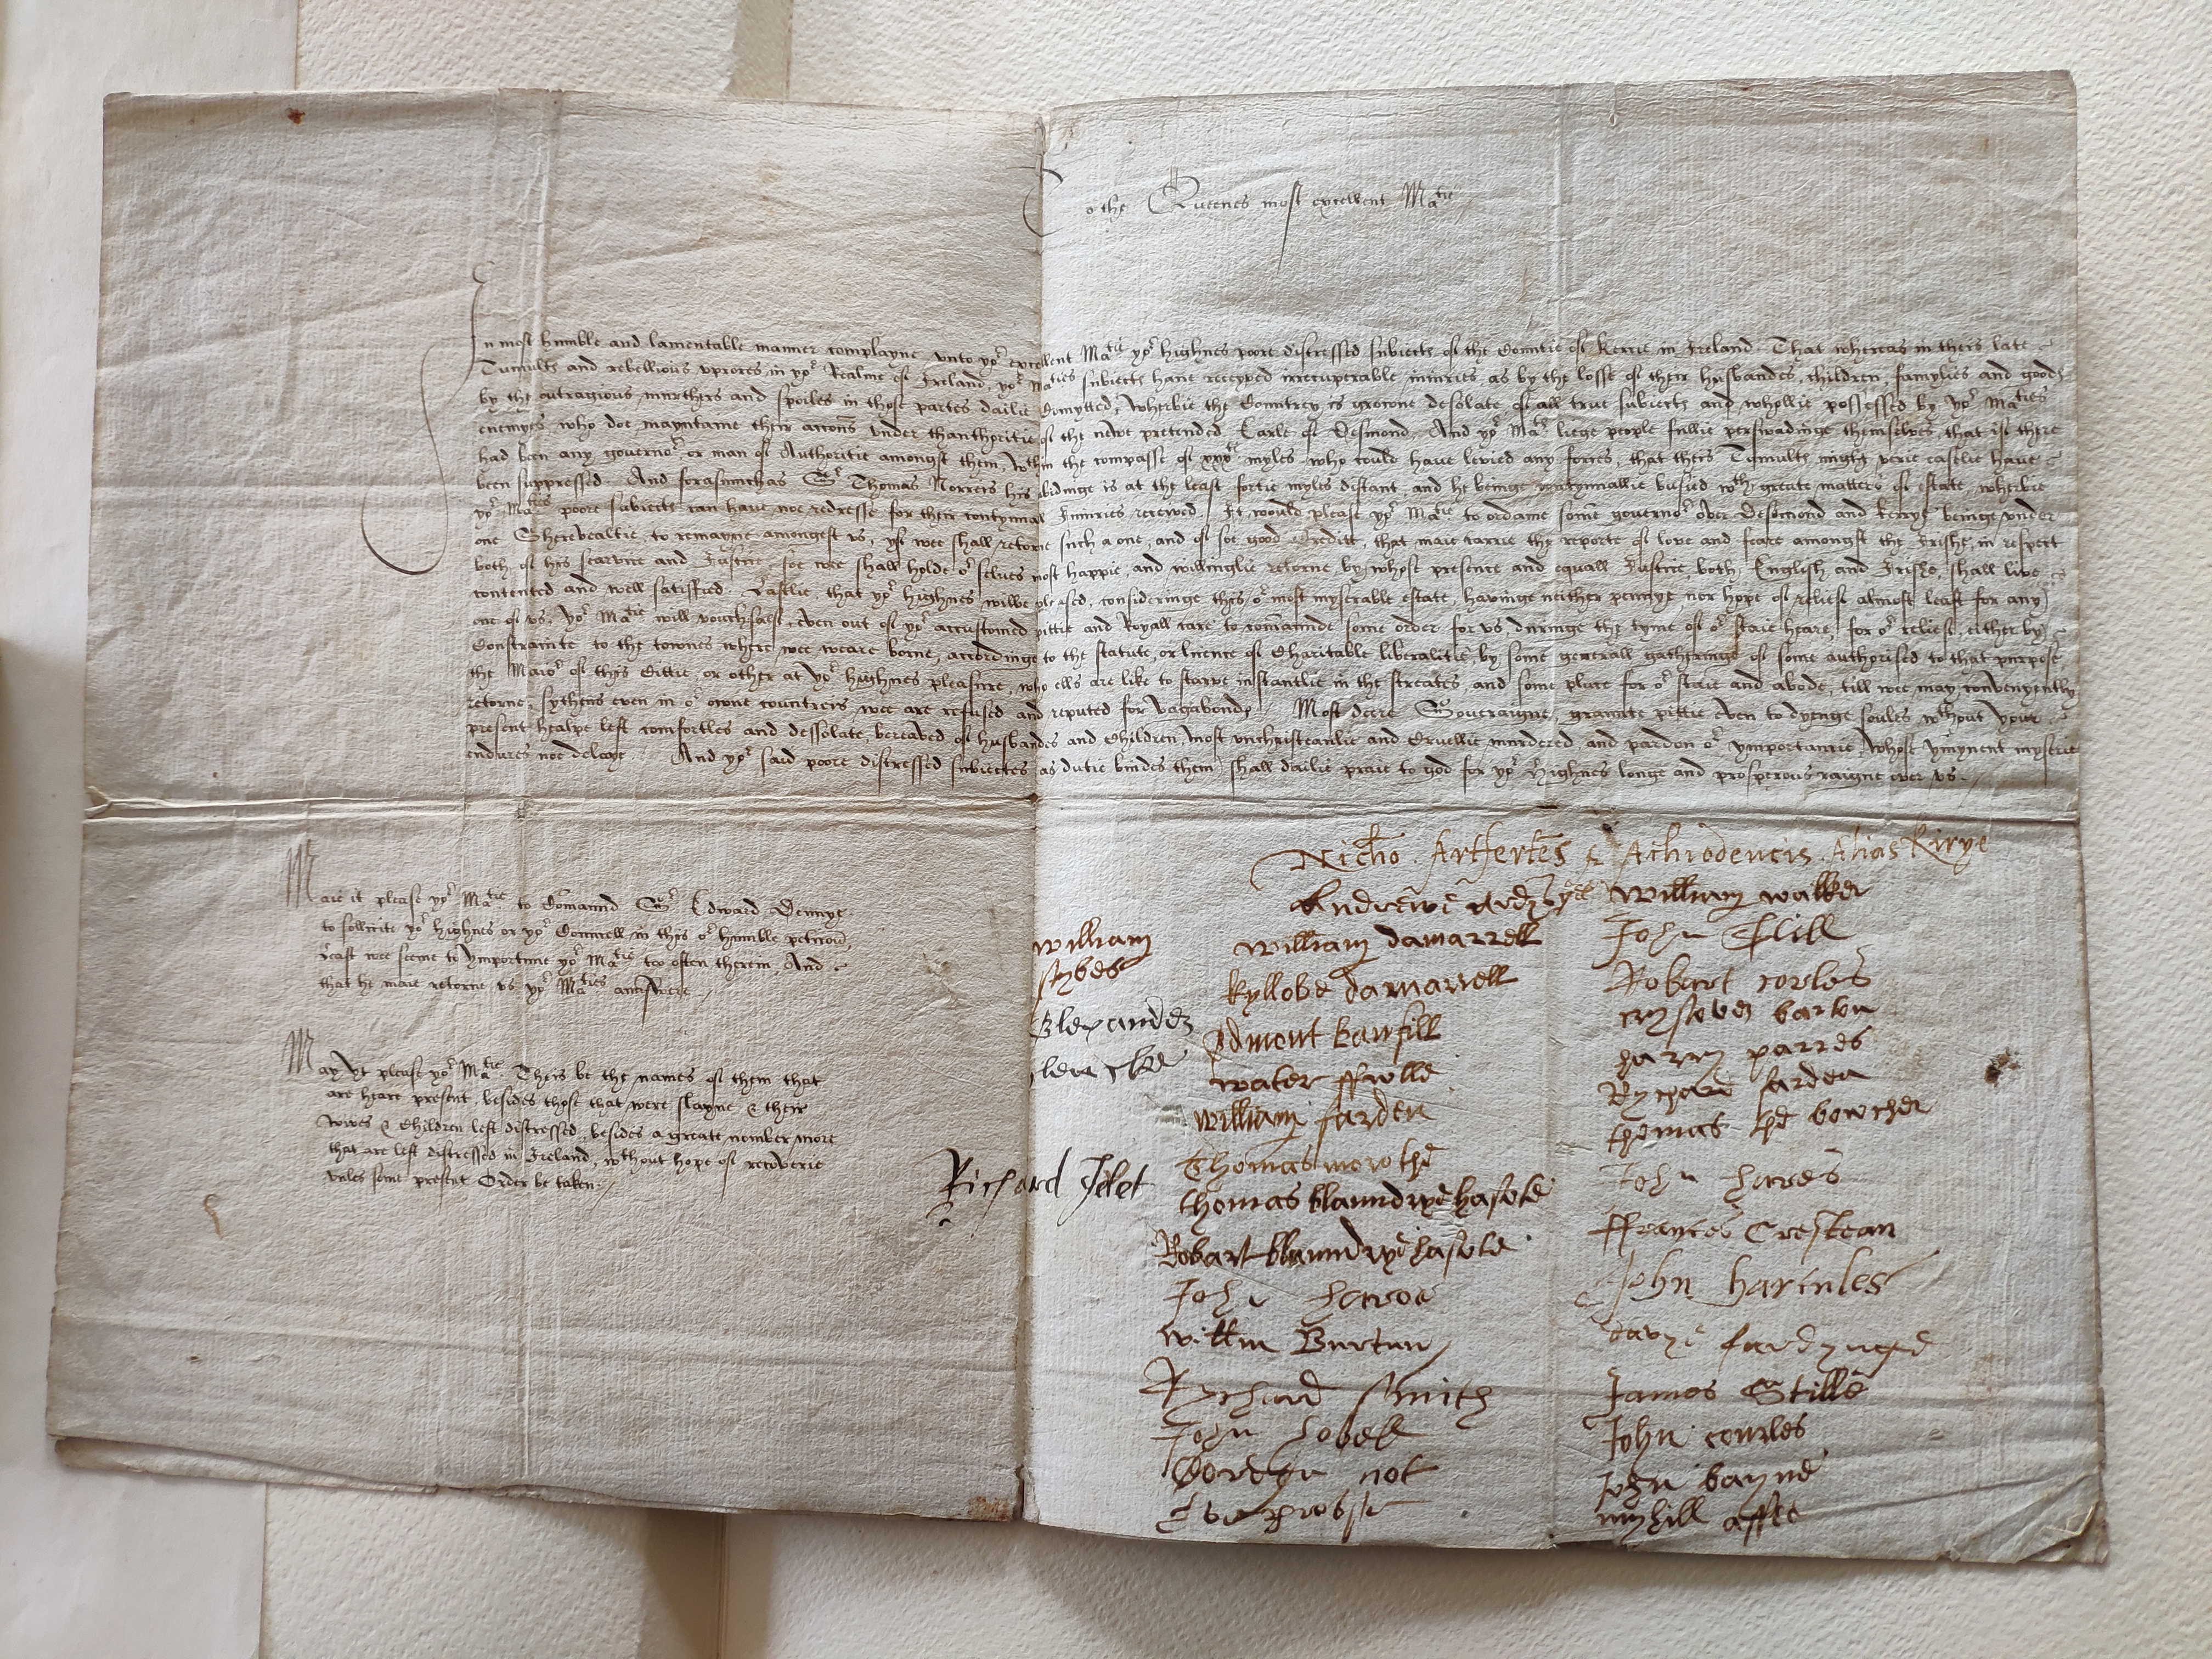 To the Queenes most excellent Matie
In most humble and lamentable manner complayne unto yor excellent Matie yor highnes poore distressed subiects of the Countie of Kerrie in Ireland. That whereas in theis late
Tumults and rebellious uprores in yor Realme of Ireland, yor Maties subiects have receyved irrecuperable iniuries as by the losse of their husbandes, children, famylies and goods
by the outragious murthers and spoiles in those partes dailie Comytted, Wherbie the Countrey is growne desolate of all true subiects and whollie possessed by yor Maties
enemyes, who doe mayntaine their accons under thauthoritie of the newe pretended Earle of Desmond. And yor Maties liege people fullie perswadinge themselves, that if there
had been any governor or man of Authoritie amongst them, wthin the compasse of xxxtie myles who could have levied any forces, that theis Tumults might verie easelie have
been suppressed. And forasmuchas Sr Thomas Norreis his abidinge is at the least fortie myles distant, and he beinge contynuallie busied wth greate matters of estate, wherbie
yor Maties poore subiects can have noe redresse for their contynual Iniuries receved. It would please yor Matie to ordaine some governor over Desmond and Kerrye beinge under
one Sherevealtie, to remayne amongest us, yf wee shall retorne such a one, and of soe good Creditt, that maie carrie the reporte of love and feare amongst the Irishe, in respect
both of his searvice and Iustice, soe wee shall holde or selves most happie, and willinglie retorne by whose presence and equall Iustice both English and Irishe, shall live
contented and well satisfied. Lastlie, that yor highnes wilbe pleased, consideringe this or most myserable estate, havinge neither pennye nor hope of reliefe almost least for any
one of us, yor Matie will vouchsafe, even out of yor accustomed pittie and Royall care to comaunde some order for us, duringe the tyme of or staie heare, for or reliefe, either by
Constrainte to the townes where wee weare borne, accordinge to the statute, or licence of Charitable liberalitie by some generall gatheringe of some authorised to that purpose
the Maior of this Cittie, or other at yor highnes pleasure, who ells are like to starve instantlie in the streates, and some place for or staie and abode, till wee may convenyently
retorne, sythens even in or owne countreis wee are refused and reputed for vagabonds. Most deare Soveraigne, graunte pittie even to dyenge soules wthout your
present healpe left comfortles and dessolate, bereaved of husbandes and Children most unchristeanlie and Cruellie murdered, and pardon or ymportancie, whose ymynent myserie
endures noe delaye. And yor said poore distressed subiectes as dutie bindes them shall dailie praie to god for yor Highnes longe and prosperous raigne over us.
Maie it please yor Matie to Comaund Sr Edward Dennye
to sollicite yor highnes or yor Counsell in this or humble peticon,
Least wee seeme to ymportune yor Matie too often therein, And
that he maie retorne us yor Maties aunswere.
May yt please yor Matie Theis be the names of them that
are heare present, besides those that were slayne & their
wives & Children left distressed, besides a greate nomber more
that are left distressed in Ireland, wthout hope of recoverie
unles some present Order be taken.
Nicho. Artfertēs & Achiodencis. Alias Kirye
William
sybes
Alexander
Richard
william damarrell
kyllobe damarrell
william farden
Thomas
thomas
Robart
John
willm Burtun
Rychard smith
John
not
william walker
John
Robart corles
harry parres
Rychard farden
thomas the bowcher
John hares
ffrances Crestean
John harcules
davye
James Stille
John courles
John bayne